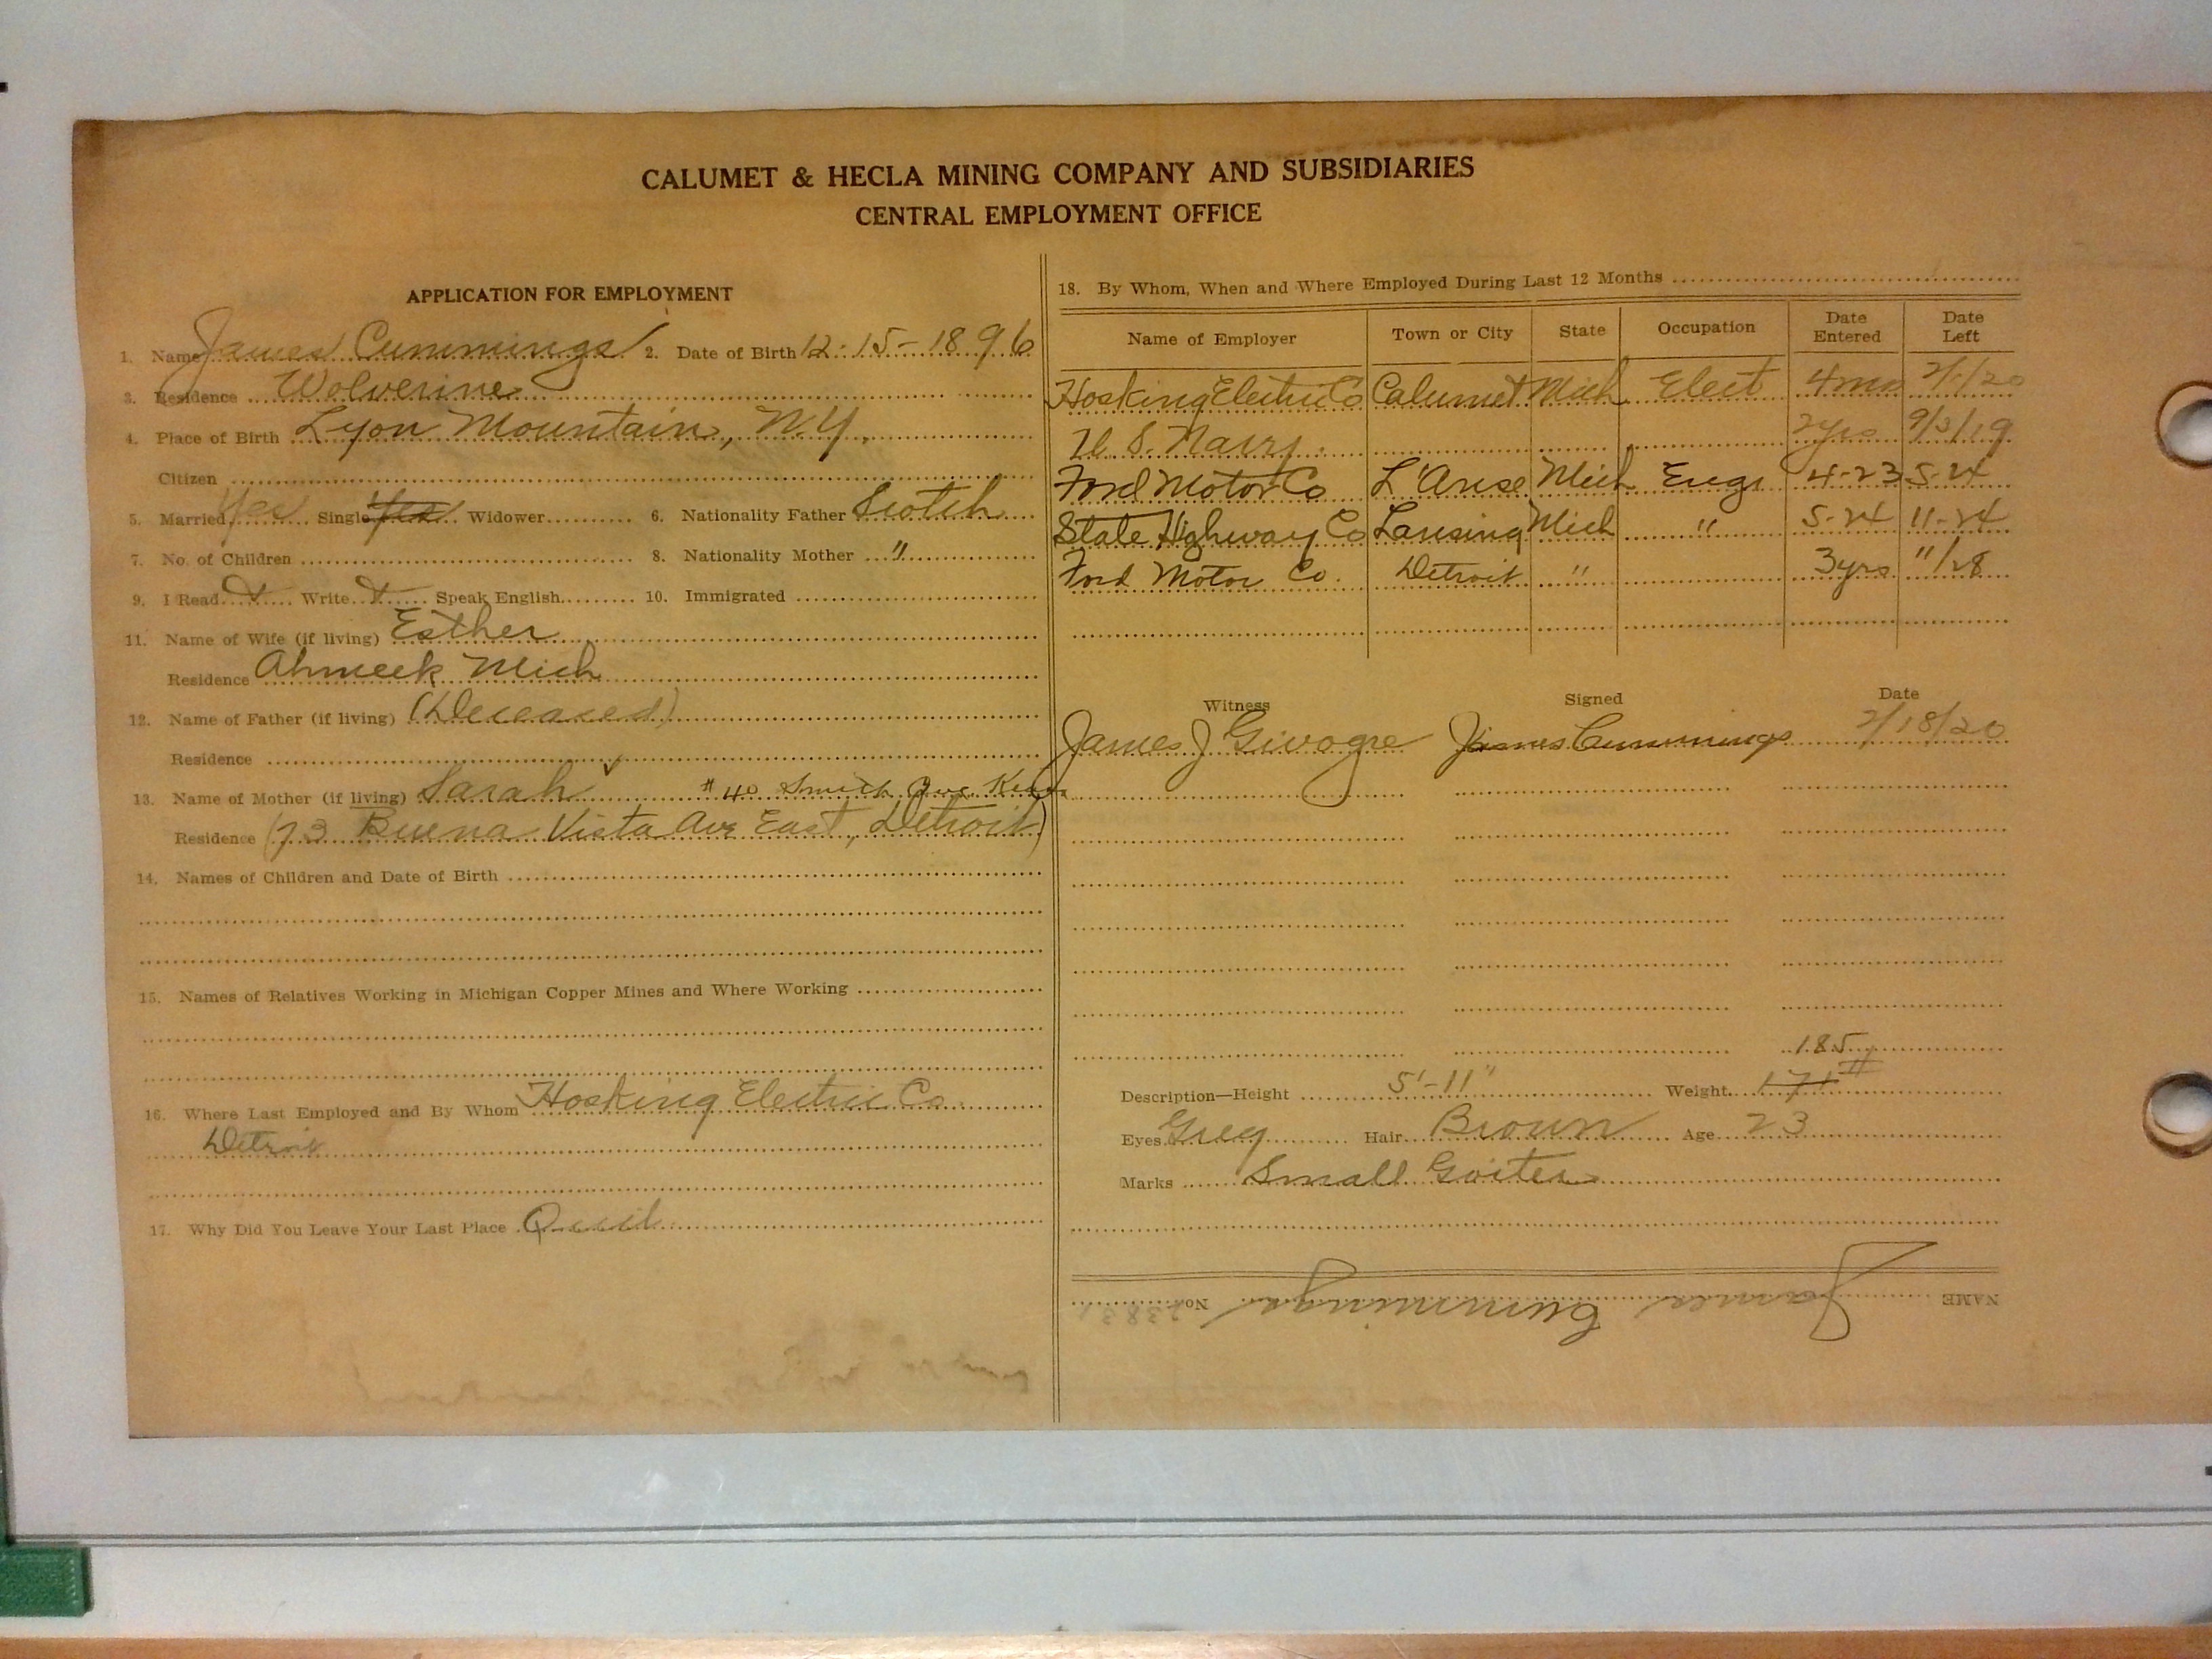 CALUMET & HECLA MINING COMPANY AND SUBSIDIARIES
CENTRAL EMPLOYMENT OFFICE
APPLICATION FOR EMPLOYMENT
1. Name James Cummings 2. Date of Birth 12-15-1896
3. Residence Wolverine
4. Place of Birth Lyon Mountain, N.Y.
Citizen
5. Married yes Single yes Widower 6. Nationality Father Scotch
7. No. of Children 8. Nationality Mother "
9. I Read Write Speak English 10. Immigrated
11. Name of Wife (if living) Esther
Residence Ahmeek Mich
12. Name of Father (if living) (Deceased)
Residence
13. Name of Mother (if living) Sarah # 40 Smith Ave
Residence (73 Buena Vista Ave East, Detroit)
14. Names of Children and Date of Birth
15. Names of Relatives Working in Michigan Copper Mines and Where Working
16. Where Last Employed and By Whom Hosking Electric Co
Detroit
17. Why Did You Leave Your Last Place Quit
18. By Whom, When and Where Employed During Last 12 Months
Name of Employer Town or City State Occupation Date Entered Date Left
Hosking Electric Co Calumet Mich Elect 4mo 2/1/20
U. S. Navy 2yrs 9/3/19
Ford Motor Co L'Anse Mich Engr 4-23 5-24
State Highway Co Lansing Mich " 5-24 11-24
Ford Motor Co. Detroit " 3yrs "/28
Witness Signed Date
James J James Cummings 2/18/20
185
Description—Height 5'-11" Weight 171 #
Eyes Grey Hair Brown Age 23
Marks Small Goiter
NAME James Cummings No.